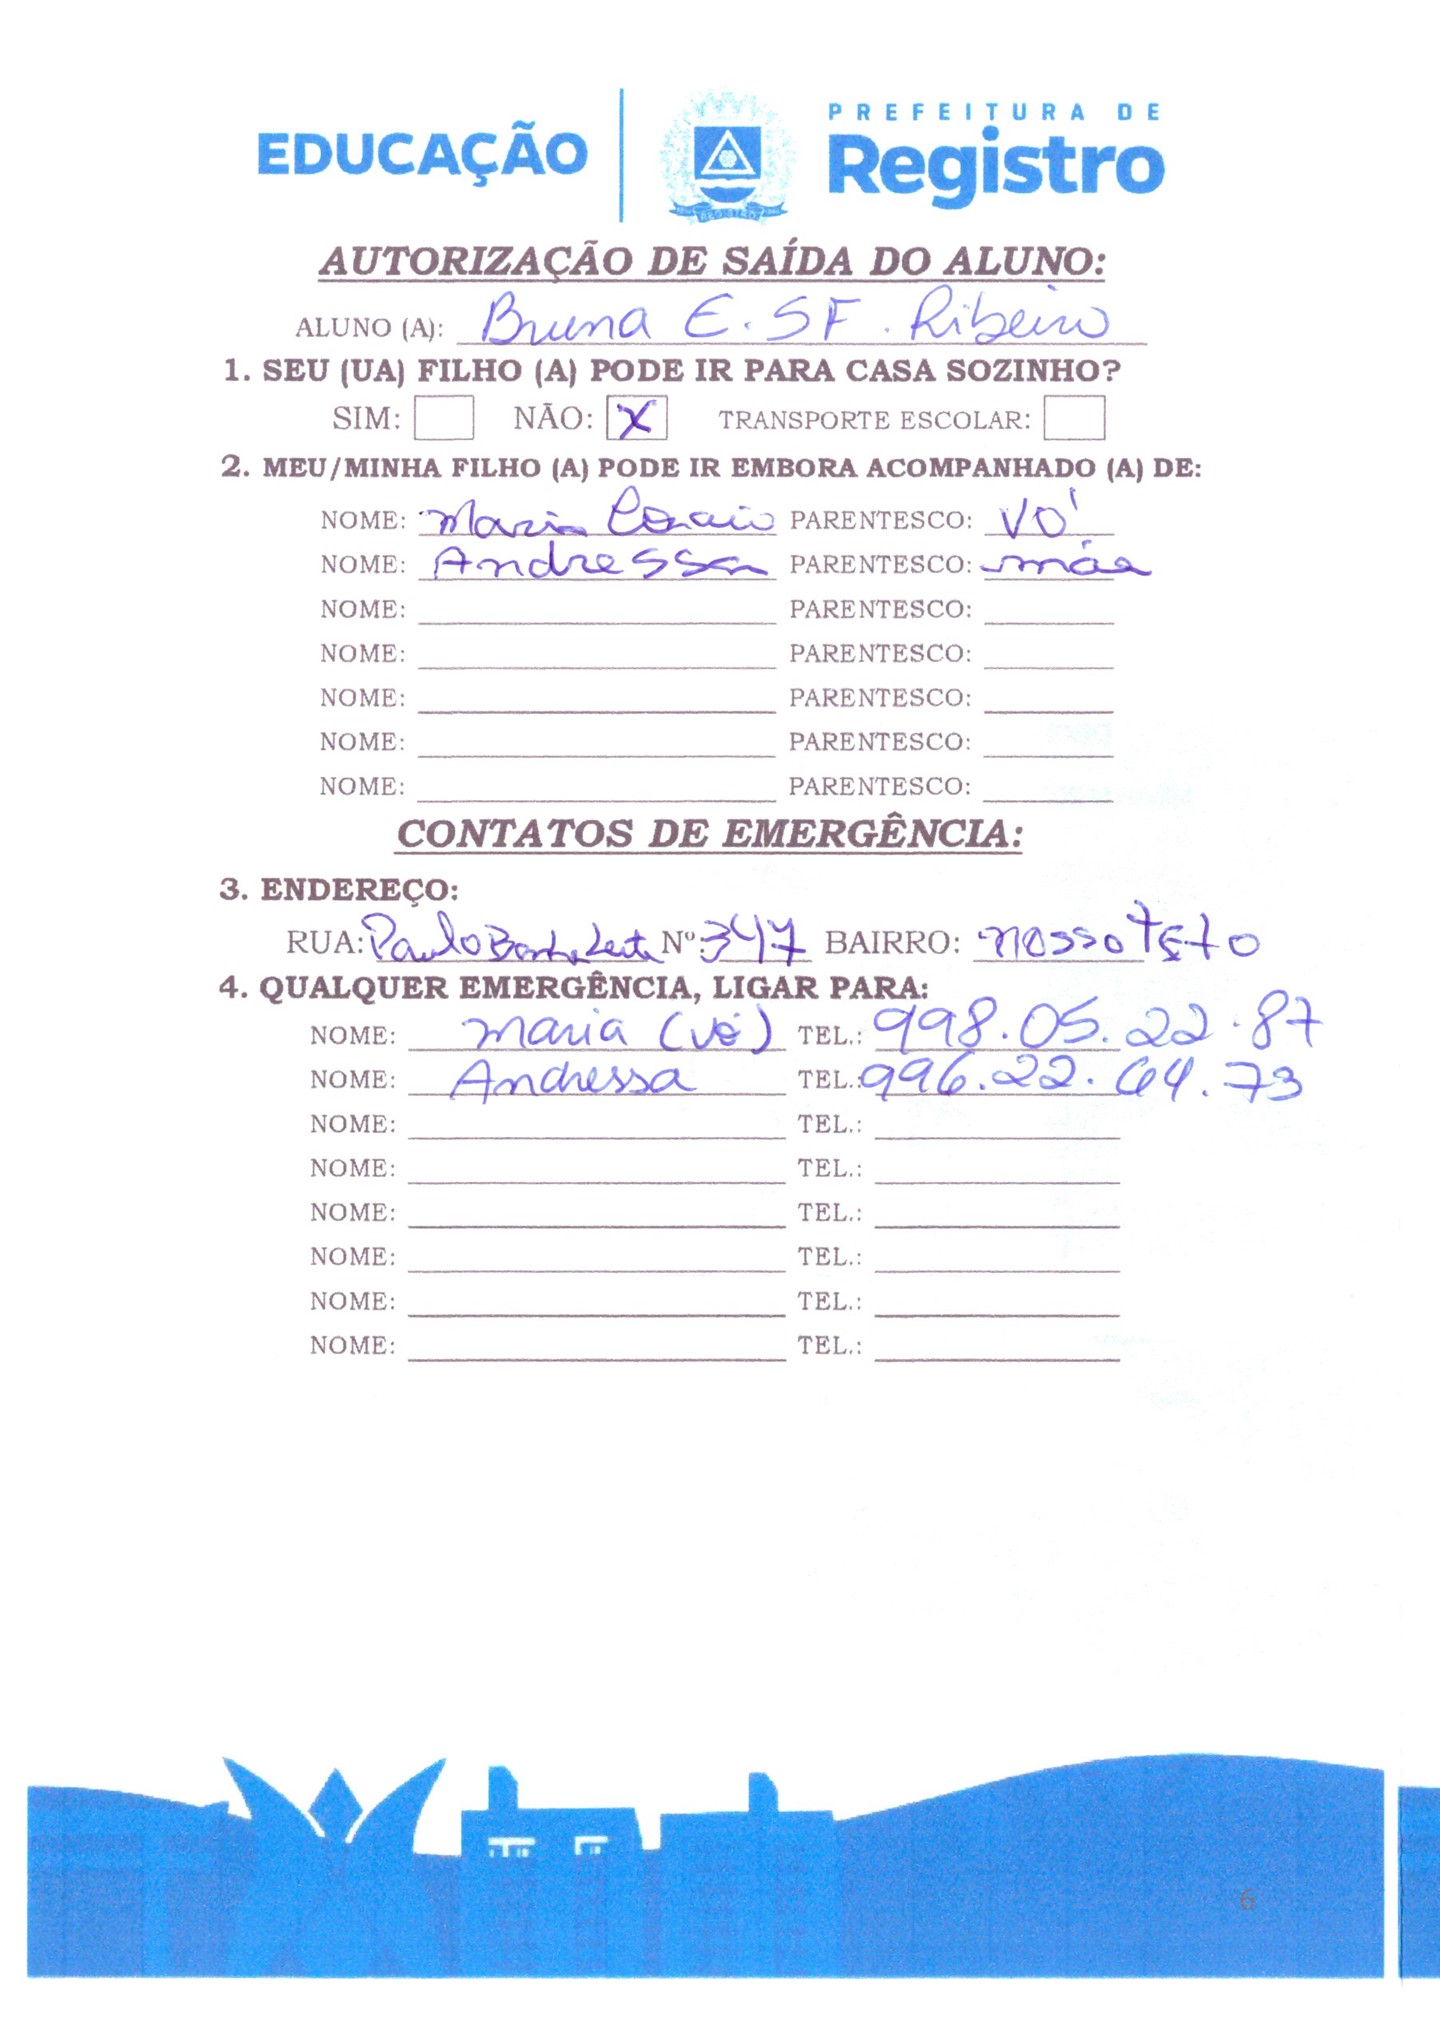 EDUCAÇÃO
PREFEITURA DE
Registro
REGISTRO
AUTORIZAÇÃO DE SAÍDA DO ALUNO:
ALUNO (A): Bruna E. SF. Ribeiro
1. SEU (UA) FILHO (A) PODE IR PARA CASA SOZINHO?
SIM: NÃO: X TRANSPORTE ESCOLAR:
2. MEU/MINHA FILHO (A) PODE IR EMBORA ACOMPANHADO (A) DE:
NOME: Maria PARENTESCO: VÓ
NOME: Andressa PARENTESCO: mãe
NOME: PARENTESCO:
NOME: PARENTESCO:
NOME: PARENTESCO:
NOME: PARENTESCO:
NOME: PARENTESCO:
CONTATOS DE EMERGÊNCIA:
3. ENDEREÇO:
RUA: Paulo Leite Nº: 347 BAIRRO: nosso teto
4. QUALQUER EMERGÊNCIA, LIGAR PARA:
NOME: maria (vó) TEL.: 998.05.22.87
NOME: Andressa TEL.: 996.22.64.73
NOME: TEL.:
NOME: TEL.:
NOME: TEL.:
NOME: TEL.:
NOME: TEL.:
NOME: TEL.:
6